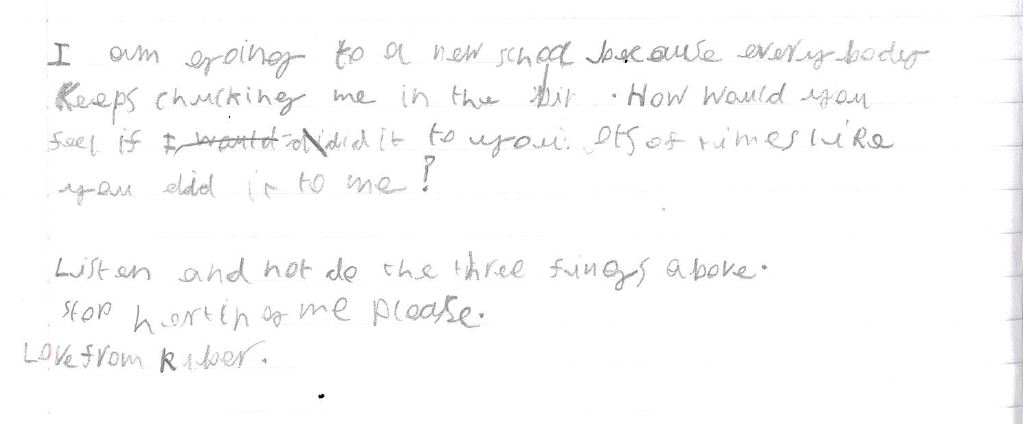 I am going to a new school because every body
Keeps chucking me in the bin. How Would you
feel if I would did it to you. lots of times like
you did it to me?
Listen and not do the three fings above.
stop herting me please.
Love from